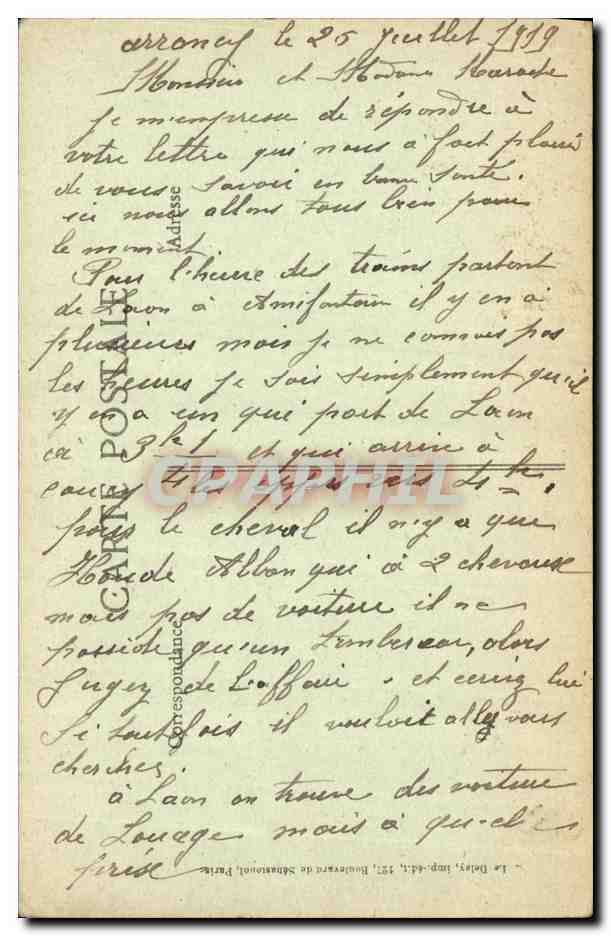 arrancy le 25 juillet 1919
Monsieur et Madame
Je m'empresse de répondre à
votre lettre qui nous a fait plaisir
de vous savoir en bonne santé.
ici nous allons tous bien pour
le moment.
Pour l'heure des trains partant
de Laon à Amifontaine il y en a
plusieurs mais je ne connais pas
les heures je sais simplement qu'il
y en a un qui part de Laon
à 3h 1 et qui arrive à
coucy les eppes vers 4h.
pour le cheval il n'y a que
Houde Alban qui a 2 chevaux
mais pas de voiture il ne
possède qu'un, alors
Jugez de l'affaire. et ecrivez lui
Si toutefois il voulait aller vous
chercher.
à Laon on trouve des voiture
de Louage mais à quel
prix
CARTE POSTALE
Correspondance
Adresse
Le Deley, imp.-édit, 127, Boulevard de Sébastopol, Paris
CPAPHIL